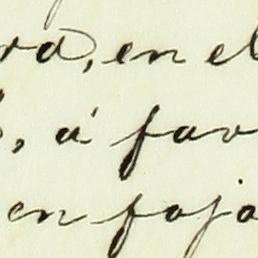 ra, en el
, á fav
en foja